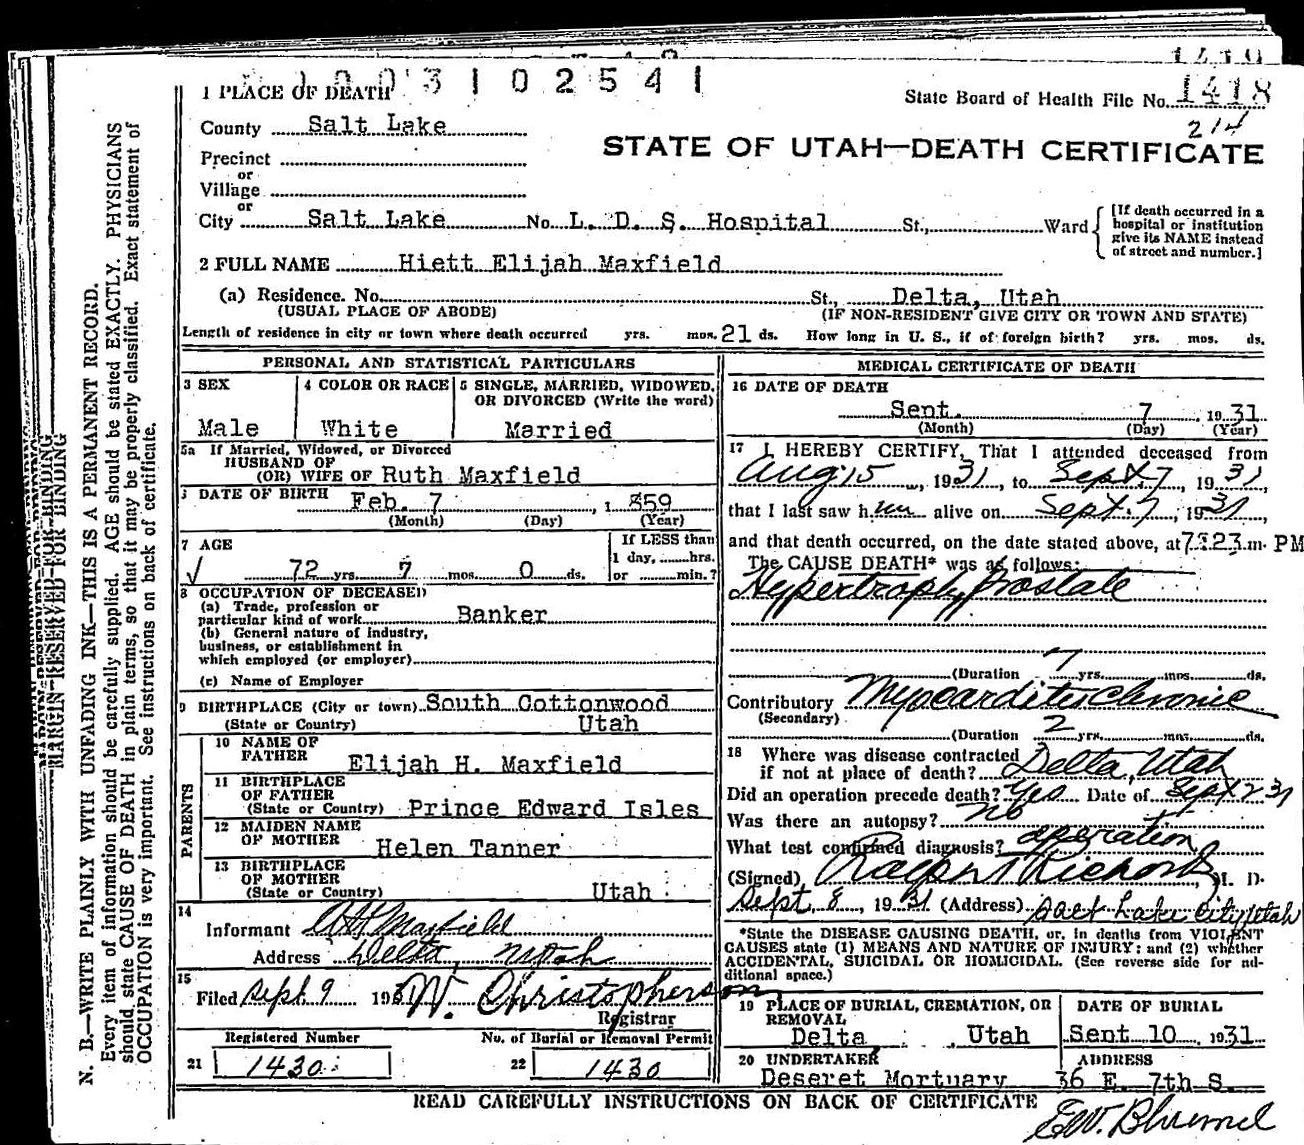 1003102541
1419
State Board of Health File No. 1418
214
1 PLACE OF DEATH
County Salt Lake
STATE OF UTAH—DEATH CERTIFICATE
Precinct
or
Village
or
City Salt Lake No. L. D. S. Hospital St., Ward
[If death occurred in a hospital or institution give its NAME instead of street and number.]
2 FULL NAME Hiett Elijah Maxfield
(a) Residence. No. St., Delta, Utah
(USUAL PLACE OF ABODE) (IF NON-RESIDENT GIVE CITY OR TOWN AND STATE)
Length of residence in city or town where death occurred yrs. mos. 21 ds. How long in U. S., if of foreign birth? yrs. mos. ds.
PERSONAL AND STATISTICAL PARTICULARS
3 SEX 4 COLOR OR RACE 5 SINGLE, MARRIED, WIDOWED,
OR DIVORCED (Write the word)
Male White Married
5a If Married, Widowed, or Divorced
HUSBAND OF
(OR) WIFE OF Ruth Maxfield
DATE OF BIRTH Feb. 7, 1 859
(Month) (Day) (Year)
7 AGE If LESS than
1 day, hrs.
72 yrs. 7 mos. 0 ds. or min.?
8 OCCUPATION OF DECEASED
(a) Trade, profession or
particular kind of work Banker
(b) General nature of industry,
business, or establishment in
which employed (or employer)
(c) Name of Employer
9 BIRTHPLACE (City or town) South Cottonwood
(State or Country) Utah
PARENTS
10 NAME OF
FATHER Elijah H. Maxfield
11 BIRTHPLACE
OF FATHER
(State or Country) Prince Edward Isles
12 MAIDEN NAME
OF MOTHER Helen Tanner
13 BIRTHPLACE
OF MOTHER
(State or Country) Utah
14
Informant Maxfield
Address Delta, Utah
15
Filed Sept 9 193 W. Christopherson
Registrar
Registered Number No. of Burial or Removal Permit
21 1430 22 1430
MEDICAL CERTIFICATE OF DEATH
16 DATE OF DEATH
Sent. 7 1931
(Month) (Day) (Year)
17 I HEREBY CERTIFY, That I attended deceased from
Aug 15, 1931, to Sept. 7, 1931,
that I last saw him alive on Sept. 7, 1931,
and that death occurred, on the date stated above, at 7:23 m. PM
The CAUSE DEATH* was as follows:
Hypertrophy Prostate
(Duration 7 yrs. mos. ds.
Contributory Myocarditis Chronic
(Secondary)
(Duration 2 yrs. mos. ds.
18 Where was disease contracted
if not at place of death? Delta, Utah
Did an operation precede death? Yes Date of Sept 2 31
Was there an autopsy? no
What test confirmed diagnosis? operation
(Signed) Ralph T Richards, M. D.
Sept. 8, 1931 (Address) Salt Lake City, Utah
*State the DISEASE CAUSING DEATH, or, in deaths from VIOLENT
CAUSES state (1) MEANS AND NATURE OF INJURY; and (2) whether
ACCIDENTAL, SUICIDAL OR HOMICIDAL. (See reverse side for ad-
ditional space.)
19 PLACE OF BURIAL, CREMATION, OR
REMOVAL DATE OF BURIAL
Delta, Utah Sent 10, 1931
20 UNDERTAKER ADDRESS
Deseret Mortuary 36 E. 7th S.
READ CAREFULLY INSTRUCTIONS ON BACK OF CERTIFICATE
MARGIN RESERVED FOR BINDING
N. B.—WRITE PLAINLY WITH UNFADING INK—THIS IS A PERMANENT RECORD.
Every item of information should be carefully supplied. AGE should be stated EXACTLY. PHYSICIANS
should state CAUSE OF DEATH in plain terms, so that it may be properly classified. Exact statement of
OCCUPATION is very important. See instructions on back of certificate.